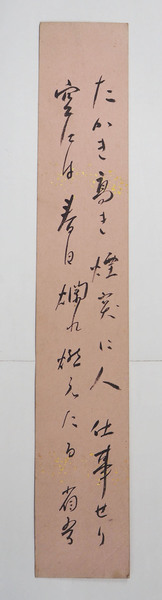 たかき高き煙突に人仕事せり
空には春日爛れ燃えたる 省吾